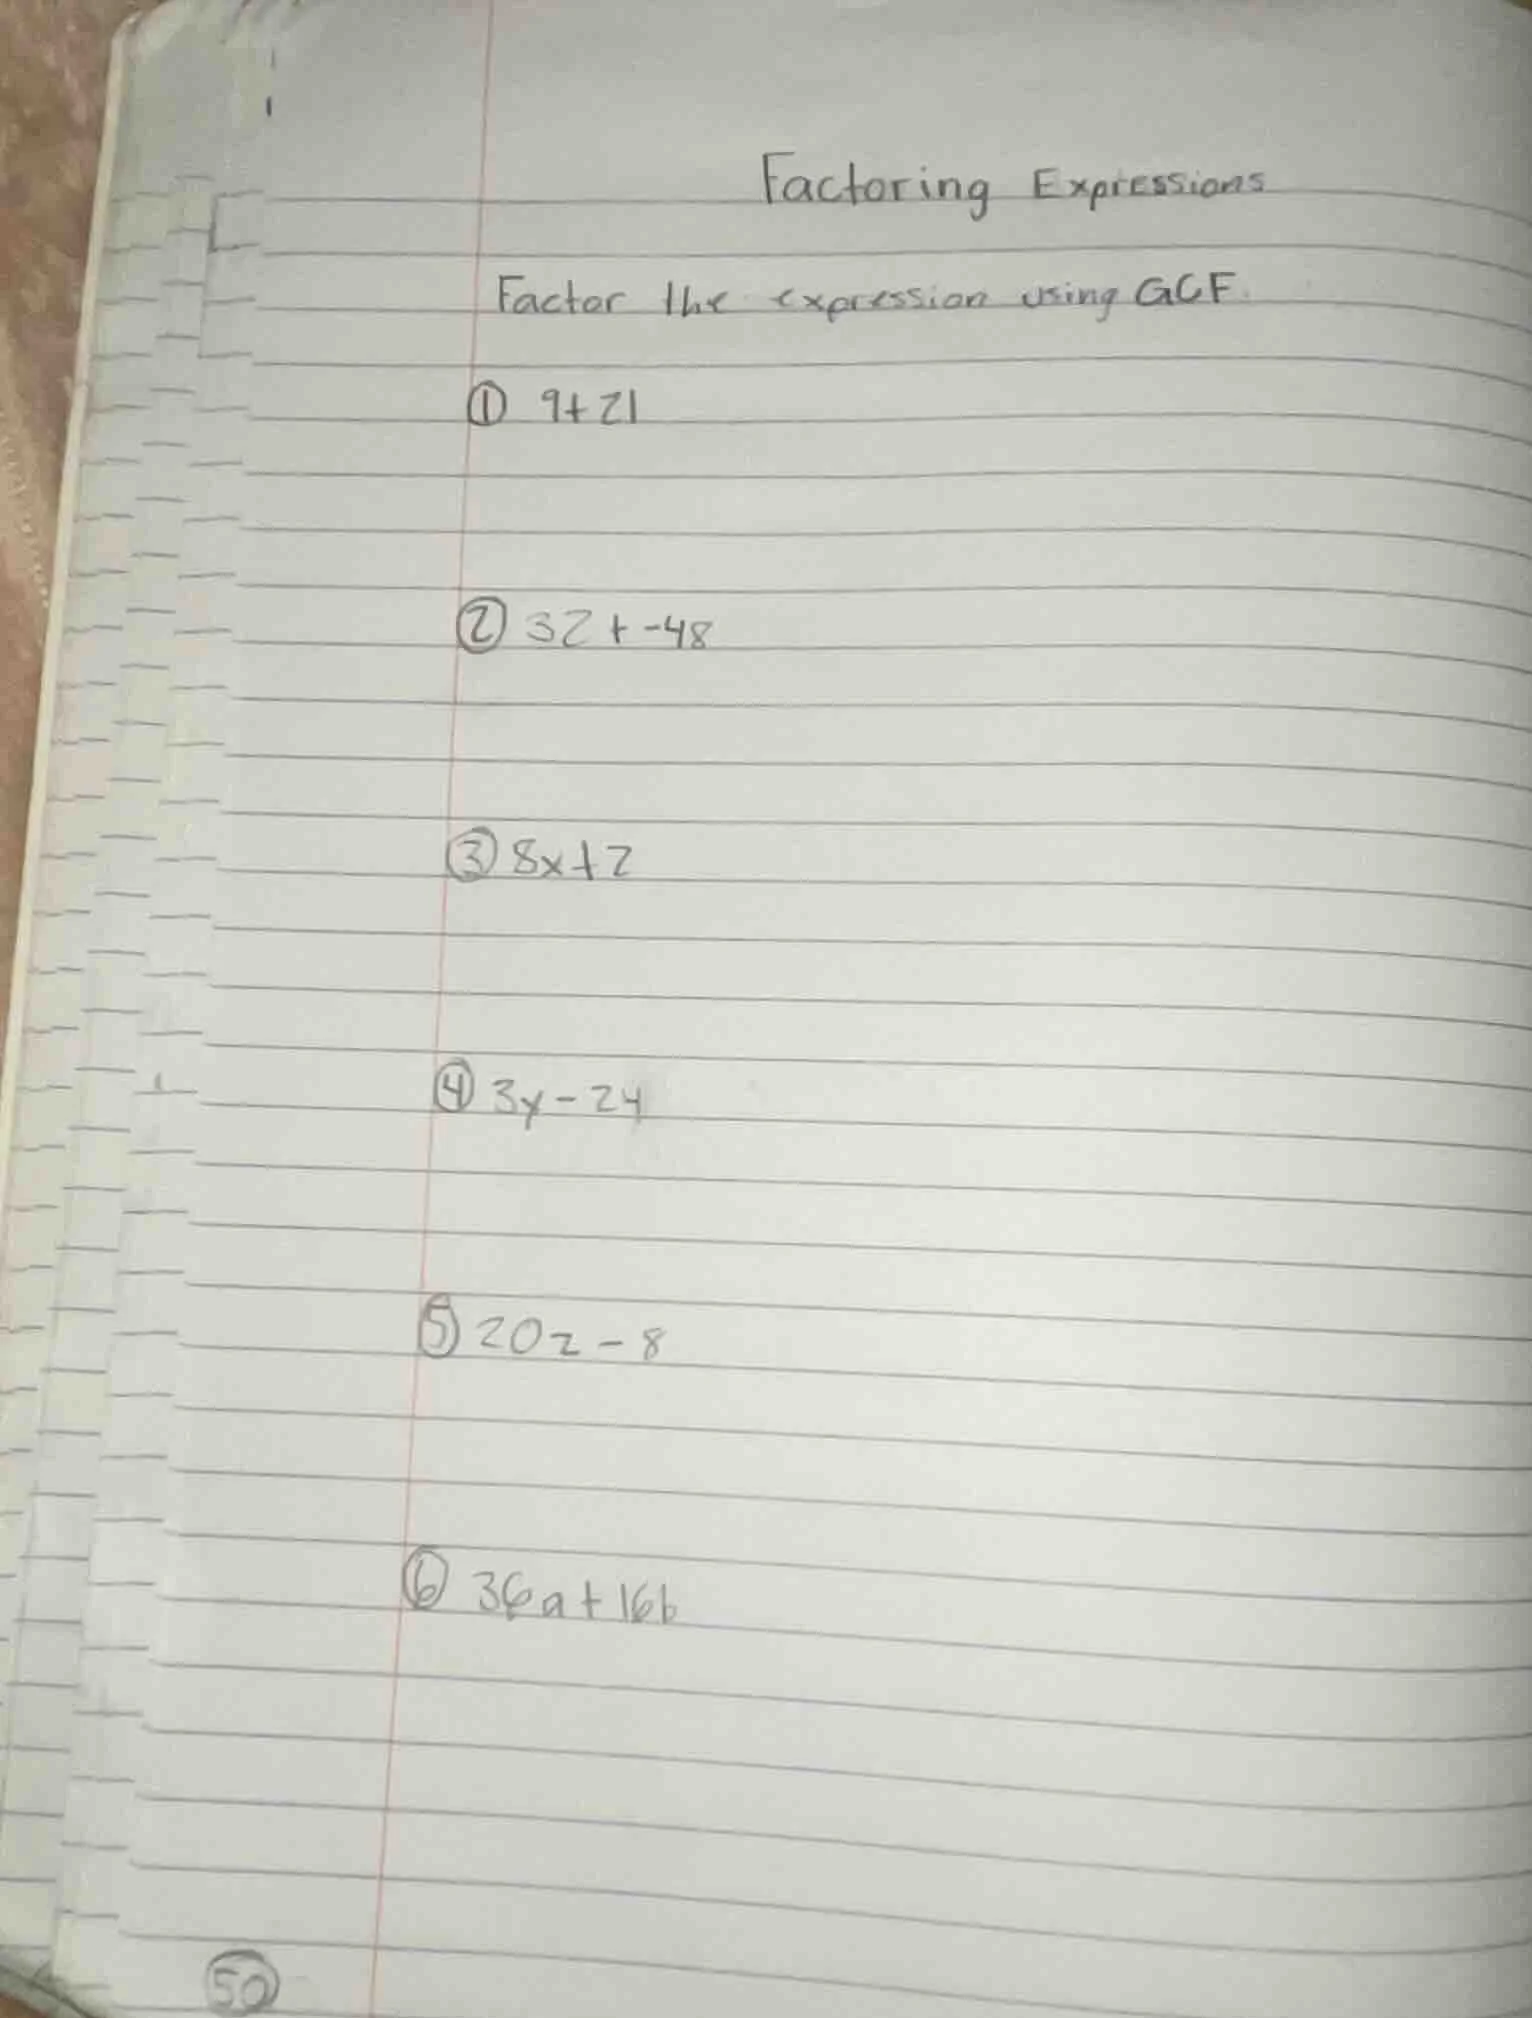 Factoring Expressions
Factor the expression using GCF.
① 9+21
② 32+-48
③ 8x+2
④ 3y-24
⑤ 20z-8
⑥ 36a+16b
50